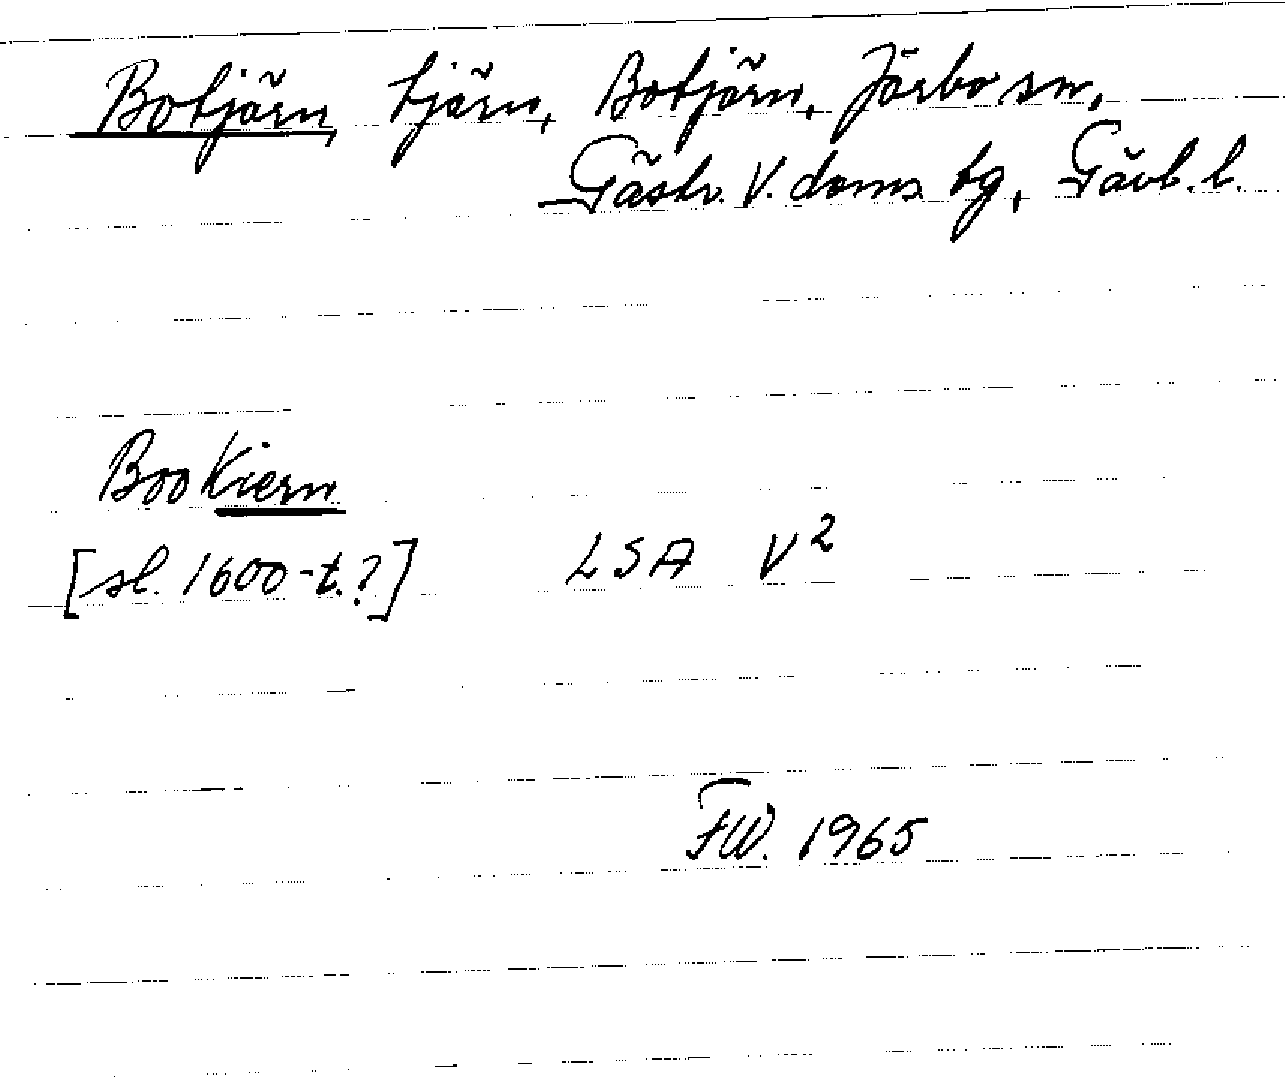 Botjärn, tjärn, Botjärn, Järbo sn,
Gästr. V. doms. tg, Gävl. l.
BooKiern
[sl. 1600-t.?] LSA V²
FW. 1965